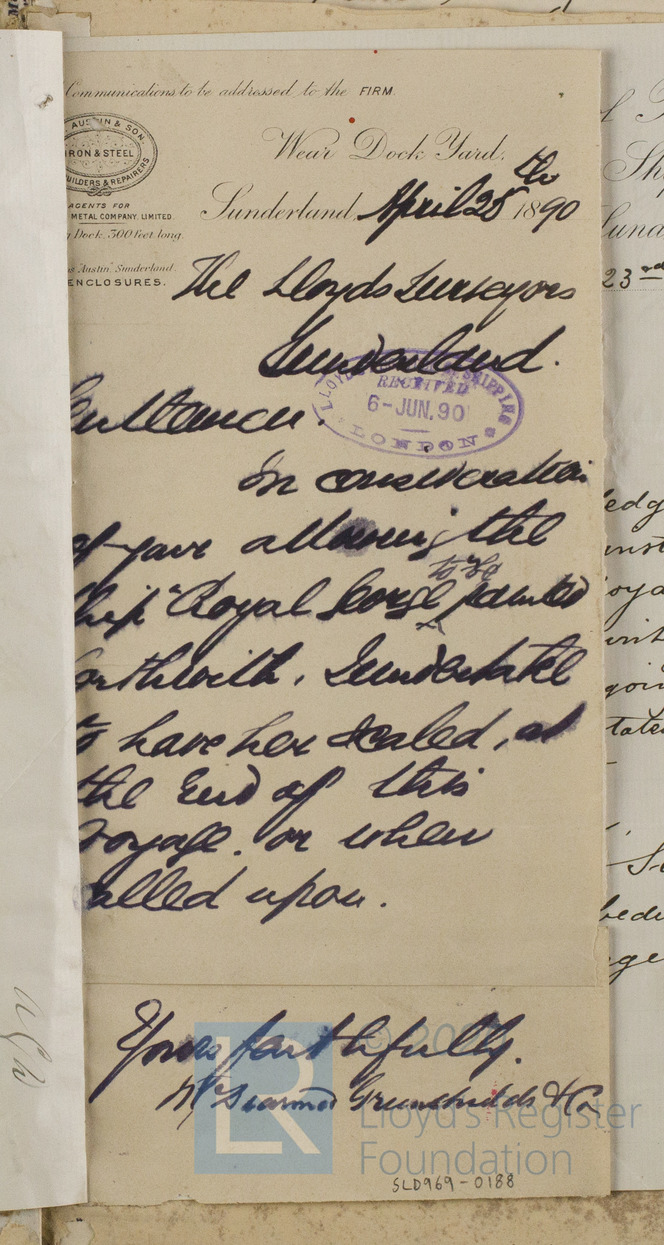 Communications to be addressed to the FIRM.
AUSTIN & SON.
IRON & STEEL
BUILDERS & REPAIRERS
AGENTS FOR
METAL COMPANY LIMITED
Dock, 300 feet long.
"Austin" Sunderland.
ENCLOSURES.
Wear Dock Yard,
Sunderland, April 28th 1890
The Lloyds Surveyors
Sunderland.
Gentlemen.
LLOYD'S SHIPPING
RECEIVED
6-JUN.90
LONDON
In consideration
of your allowing the
Ship "Royal George to be painted
forthwith. I undertake
to have her scaled, at
the End of this
Voyage. or when
called upon.
Yours faithfully.
& Co
© 20
LR
Lloyd's Register
Foundation
SLD969-0188
23rd